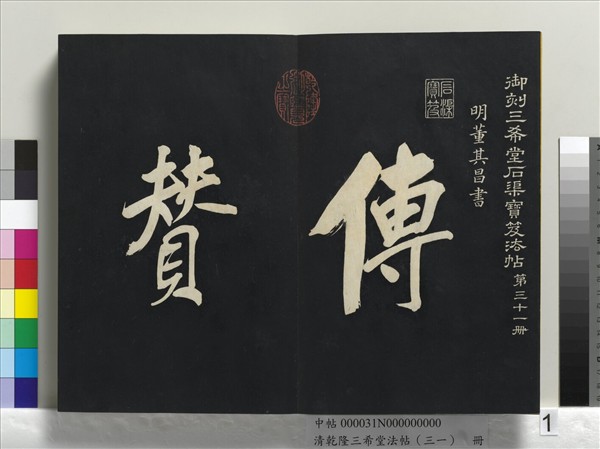 御刻三希堂石渠寶笈法帖第三十一册
石渠寶笈
明董其昌書
傳
贊
中帖000031N000000000
清乾隆三希堂法帖（三一） 冊
1